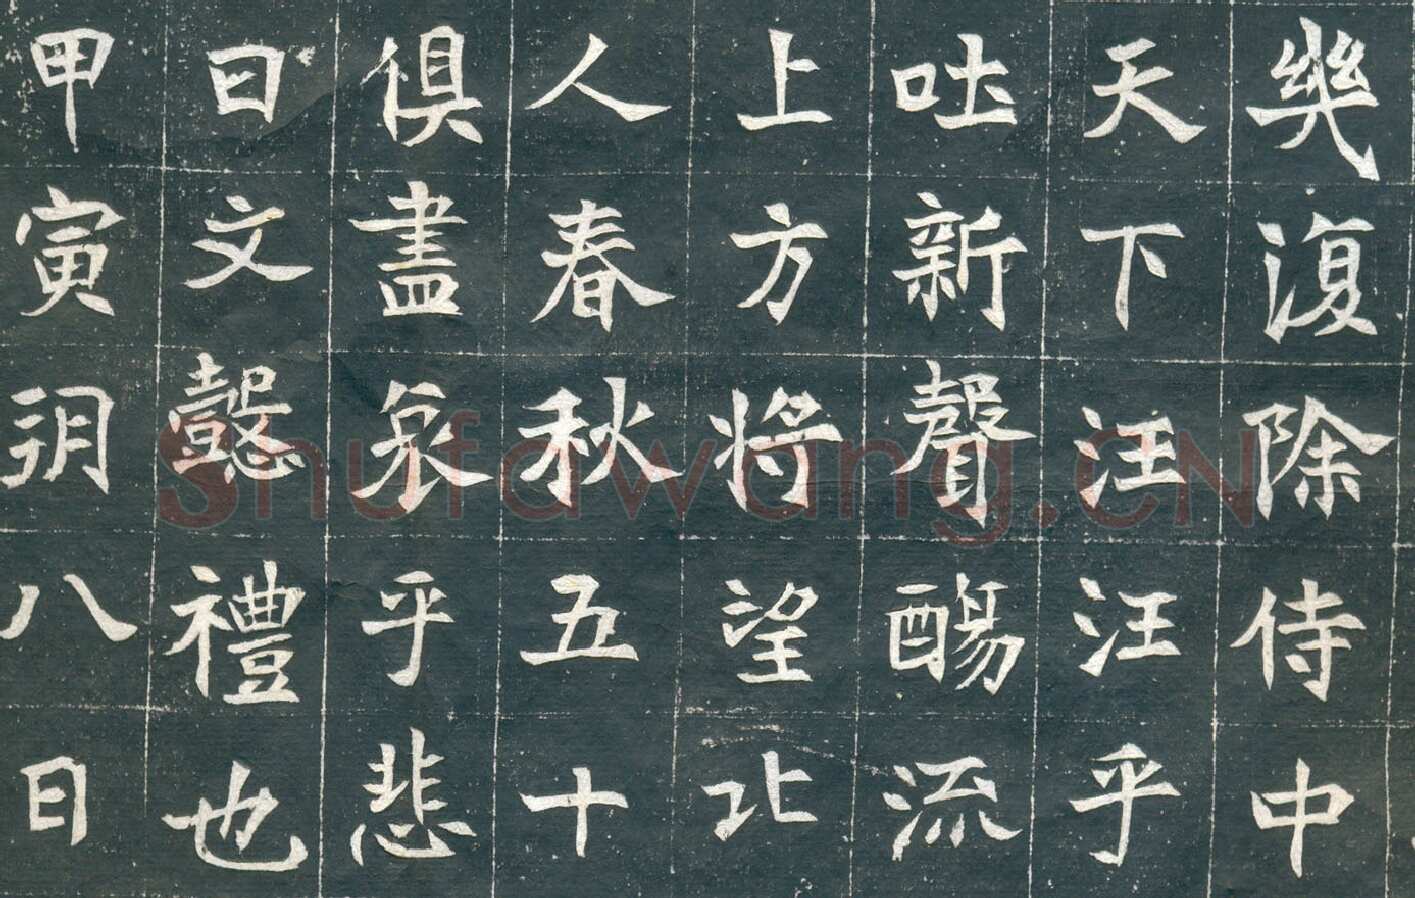 幾復除侍中
天下汪汪乎
吐新聲觴流
上方將望北
人春秋五十
俱盡哀乎悲
曰文懿禮也
甲寅朔八日
Shufawang.CN